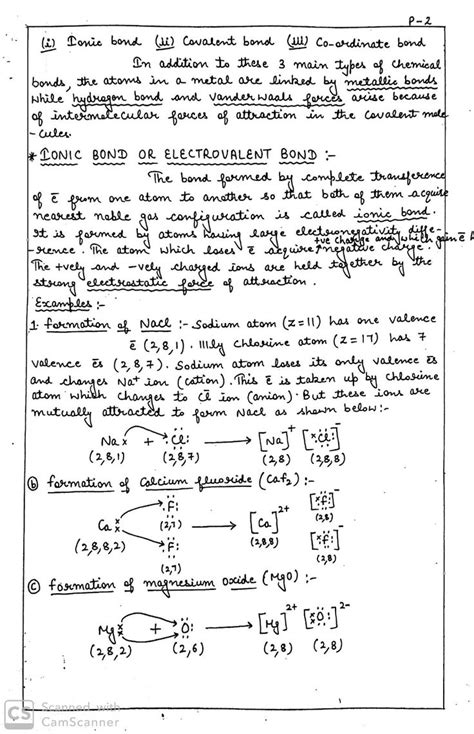 P-2
(i) Ionic bond (ii) Covalent bond (iii) Co-ordinate bond
In addition to these 3 main types of chemical
bonds, the atoms in a metal are linked by metallic bonds
while hydrogen bond and Vanderwaals forces arise because
of intermolecular forces of attraction in the covalent mole
-cules.
* IONIC BOND OR ELECTROVALENT BOND :-
The bond formed by complete transference
of ē from one atom to another so that both of them acquire
nearest noble gas configuration is called ionic bond.
It is formed by atoms having large electronegativity diffe-
-rence. The atom which loses ē acquire +ve charge and which gain ē
negative charge.
The +vely and -vely charged ions are held together by the
strong electrostatic force of attraction.
Examples :-
1. formation of NaCl :- Sodium atom (z=11) has one valence
ē (2,8,1). Illly chlorine atom (z=17) has 7
valence ēs (2,8,7). Sodium atom loses its only valence ēs
and changes Na⁺ ion (cation). This ē is taken up by chlorine
atom which changes to Cl̄ ion (anion). But these ions are
mutually attracted to form NaCl as shown below:-
Na x + :Cl: → [Na]⁺ [x Cl:]⁻
(2,8,1) (2,8,7) (2,8) (2,8,8)
(b) formation of Calcium fluoride (CaF₂) :-
:F: [x F:]⁻
Ca x x (2,7) → [Ca]²⁺ (2,8)
(2,8,8,2) :F: (2,8,8) [x F:]⁻
(2,7) (2,8)
(c) formation of magnesium oxide (MgO) :-
Mg x x + :O: → [Mg]²⁺ [x x O:]²⁻
(2,8,2) (2,6) (2,8) (2,8)
CS Scanned with
CamScanner